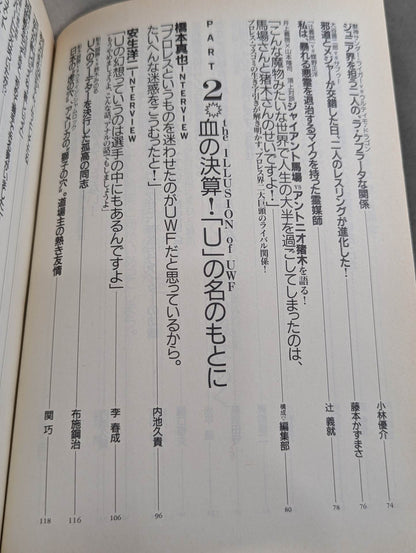 ジュニア界を担う二人の、ラ・ケブラータな関係
小林優介
74
邪道とメジャーが交錯した日、二人のレスリングが進化した!
藤本かずまさ
76
私は、暴れる悪霊を退治するマイクを持った霊媒師
辻 義就
78
ジャイアント馬場vsアントニオ猪木を語る!
「こんな魔物みたいな世界で人生の大半を過ごしてしまったのは、
馬場さんと猪木さんのせいですよ!」
プロレス界二大巨頭のライバル関係!
構成◎編集部
80
PART 2
血の決算!「U」の名のもとに
the ILLUSION of UWF
橋本真也 INTERVIEW
「プロレスというものを迷わせたのがUWFだと思っているから。
たいへんな迷惑をこうむったと!」
内池久貴
96
安生洋二 INTERVIEW
「Uの幻想っていうのは選手の中にもあるんですよ」
李 春成
106
を決行した孤高の同志
布施鋼治
116
道場主の熱き友情
関 巧
118